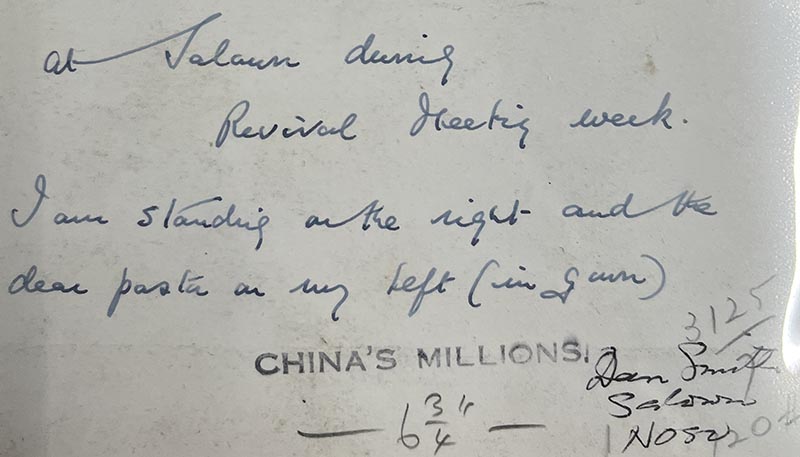 at Salawu during
Revival Meeting week.
I am standing on the right and the
dear pastor on my left (in gown)
CHINA'S MILLIONS.
3125
Dan Smith
— 6 3/4" —